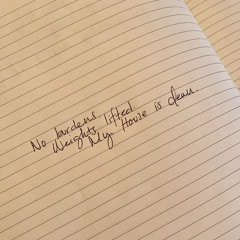 No burdens.
Weights lifted.
My House is clean.